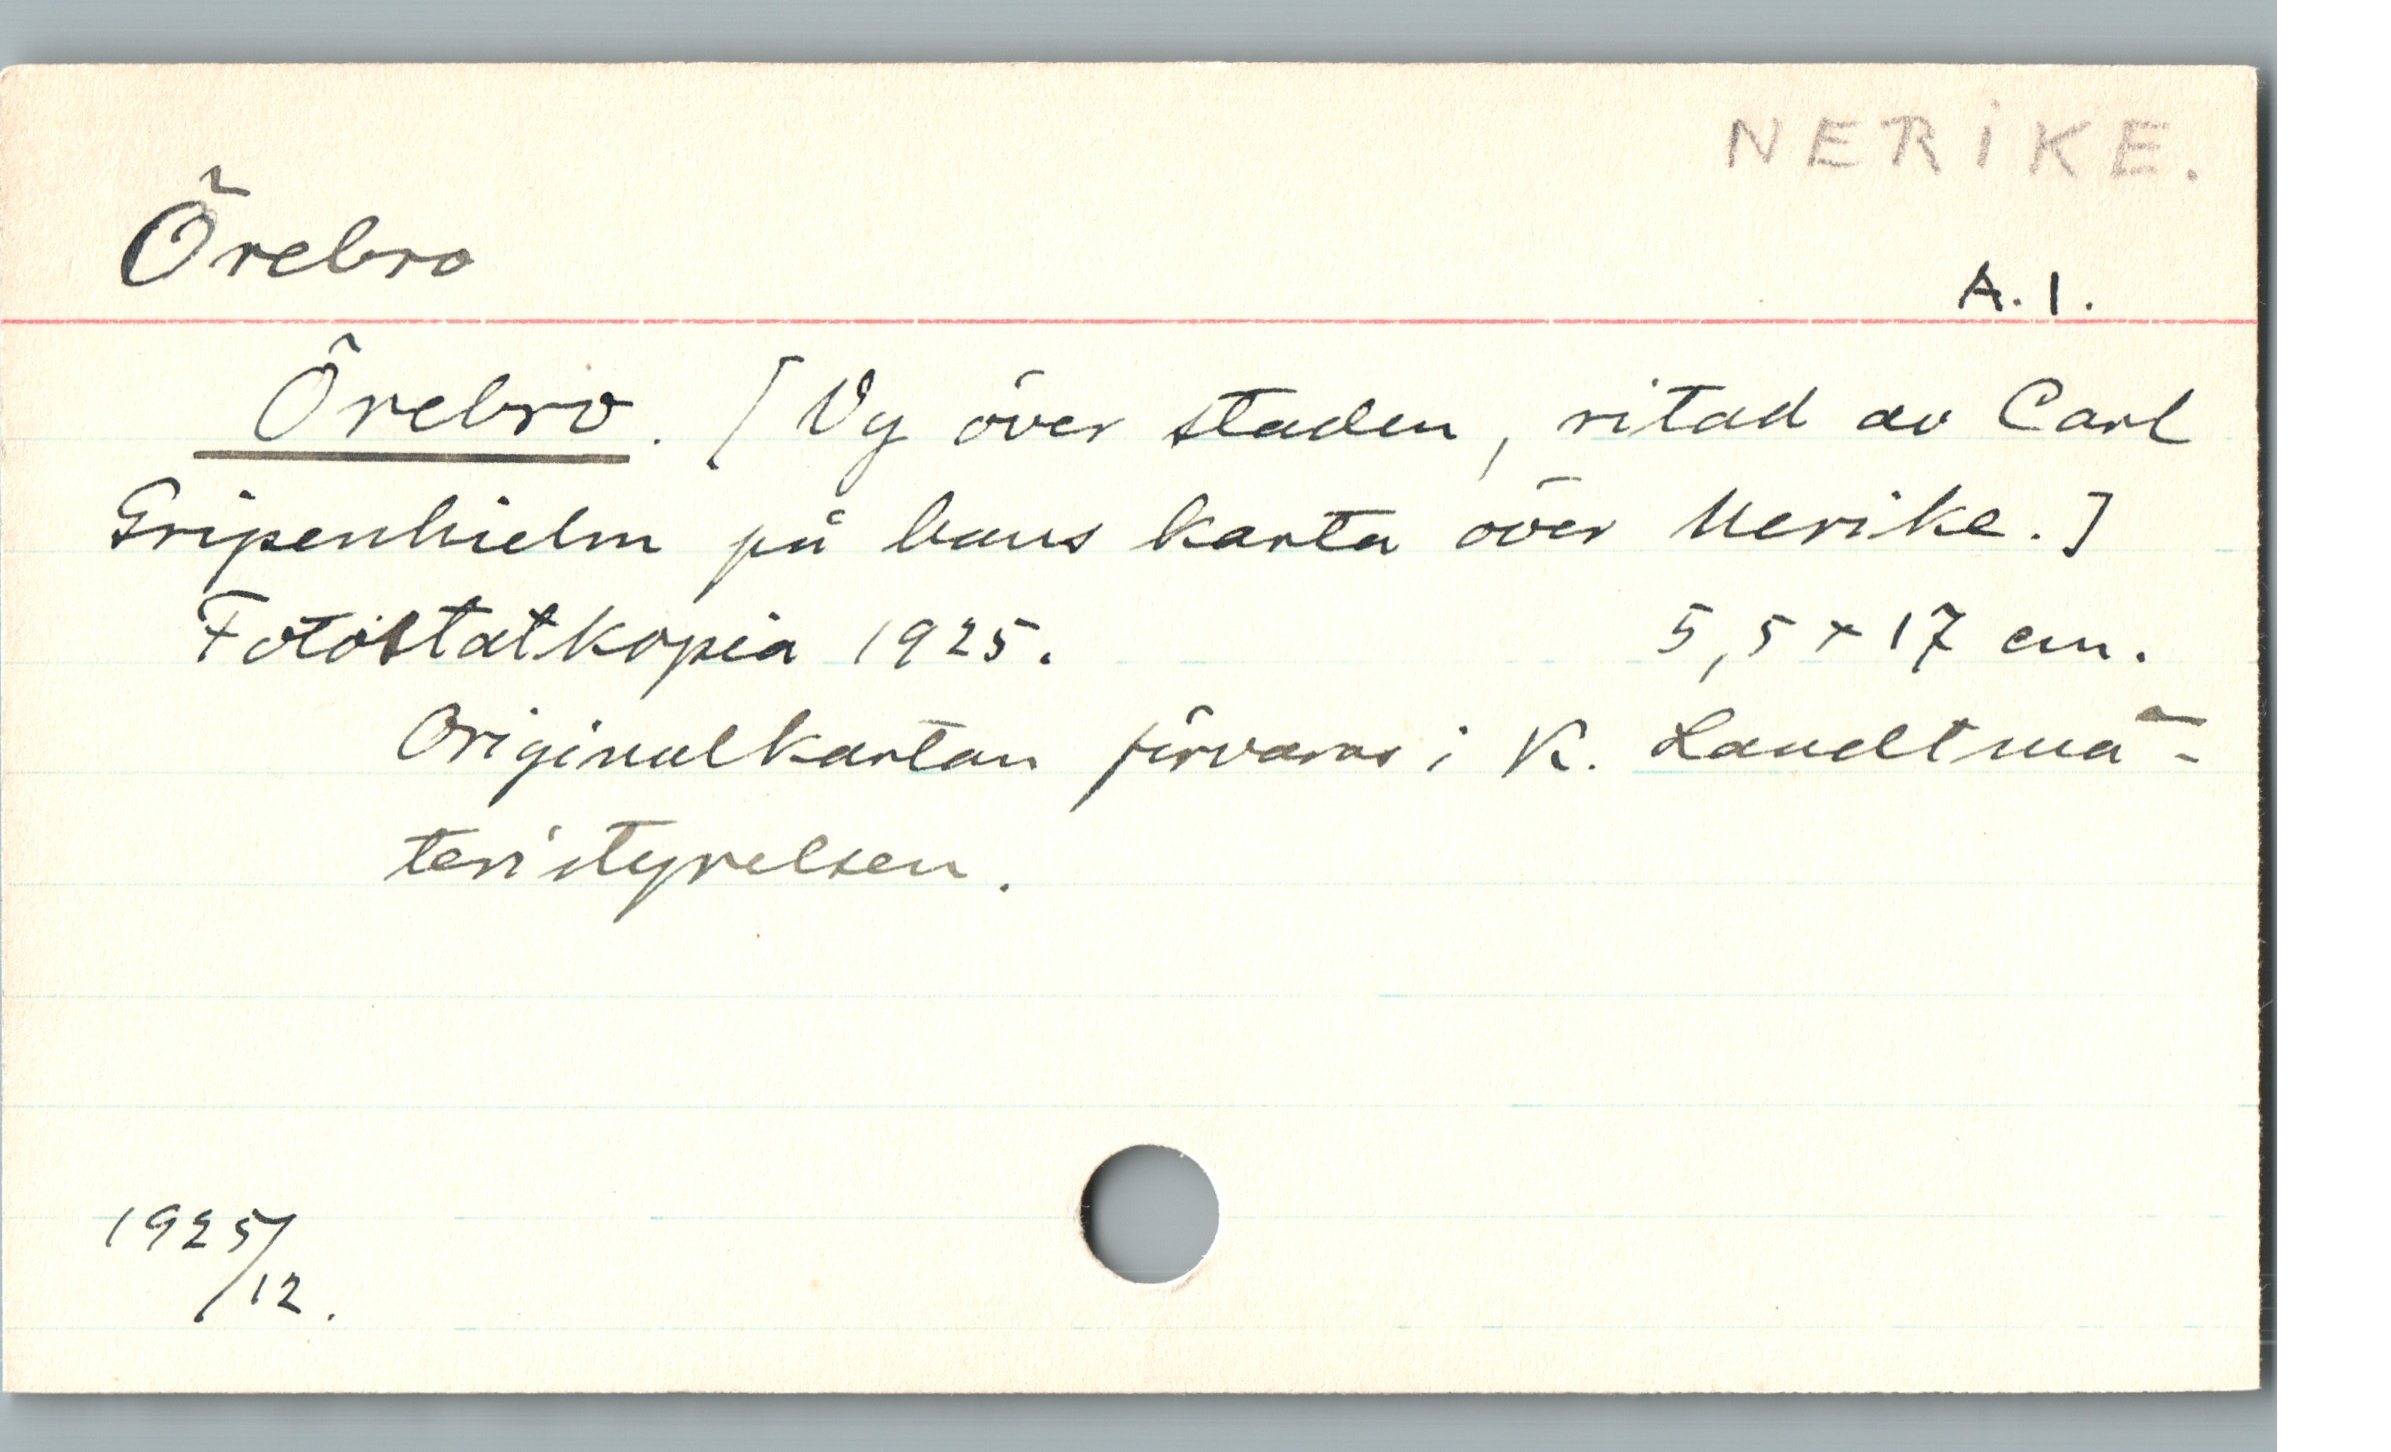 NERIKE.
Örebro
A. 1.
Örebro. [Vy över staden, ritad av Carl
Gripenhielm på hans karta över Nerike.]
Fotostatkopia 1925. 5,5 × 17 cm.
Originalkartan förvaras i K. Landtmä-
teristyrelsen.
1925/
12.